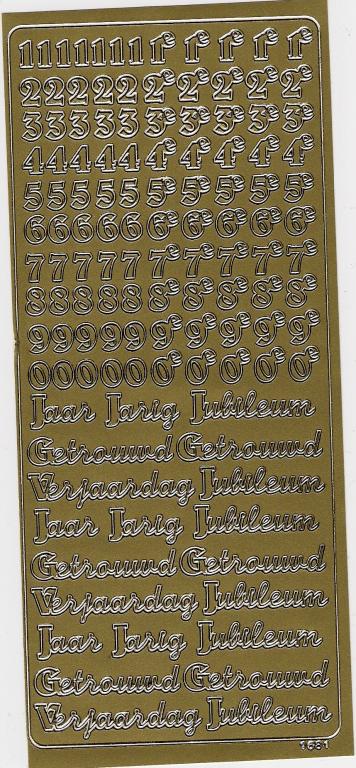 1 1 1 1 1 1 1e 1e 1e 1e 1e
2 2 2 2 2 2e 2e 2e 2e 2e
3 3 3 3 3 3e 3e 3e 3e 3e
4 4 4 4 4 4e 4e 4e 4e 4e
5 5 5 5 5 5e 5e 5e 5e 5e
6 6 6 6 6 6e 6e 6e 6e 6e
7 7 7 7 7 7e 7e 7e 7e 7e
8 8 8 8 8 8e 8e 8e 8e 8e
9 9 9 9 9 9e 9e 9e 9e 9e
0 0 0 0 0 0e 0e 0e 0e 0e
Jaar Jarig Jubileum
Getrouwd Getrouwd
Verjaardag Jubileum
Jaar Jarig Jubileum
Getrouwd Getrouwd
Verjaardag Jubileum
Jaar Jarig Jubileum
Getrouwd Getrouwd
Verjaardag Jubileum
1581